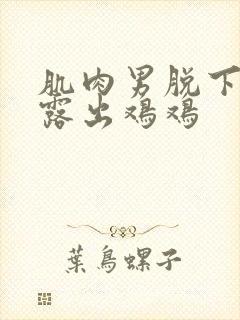 肌肉男脱下
露出鸡鸡
葉鳥螺子